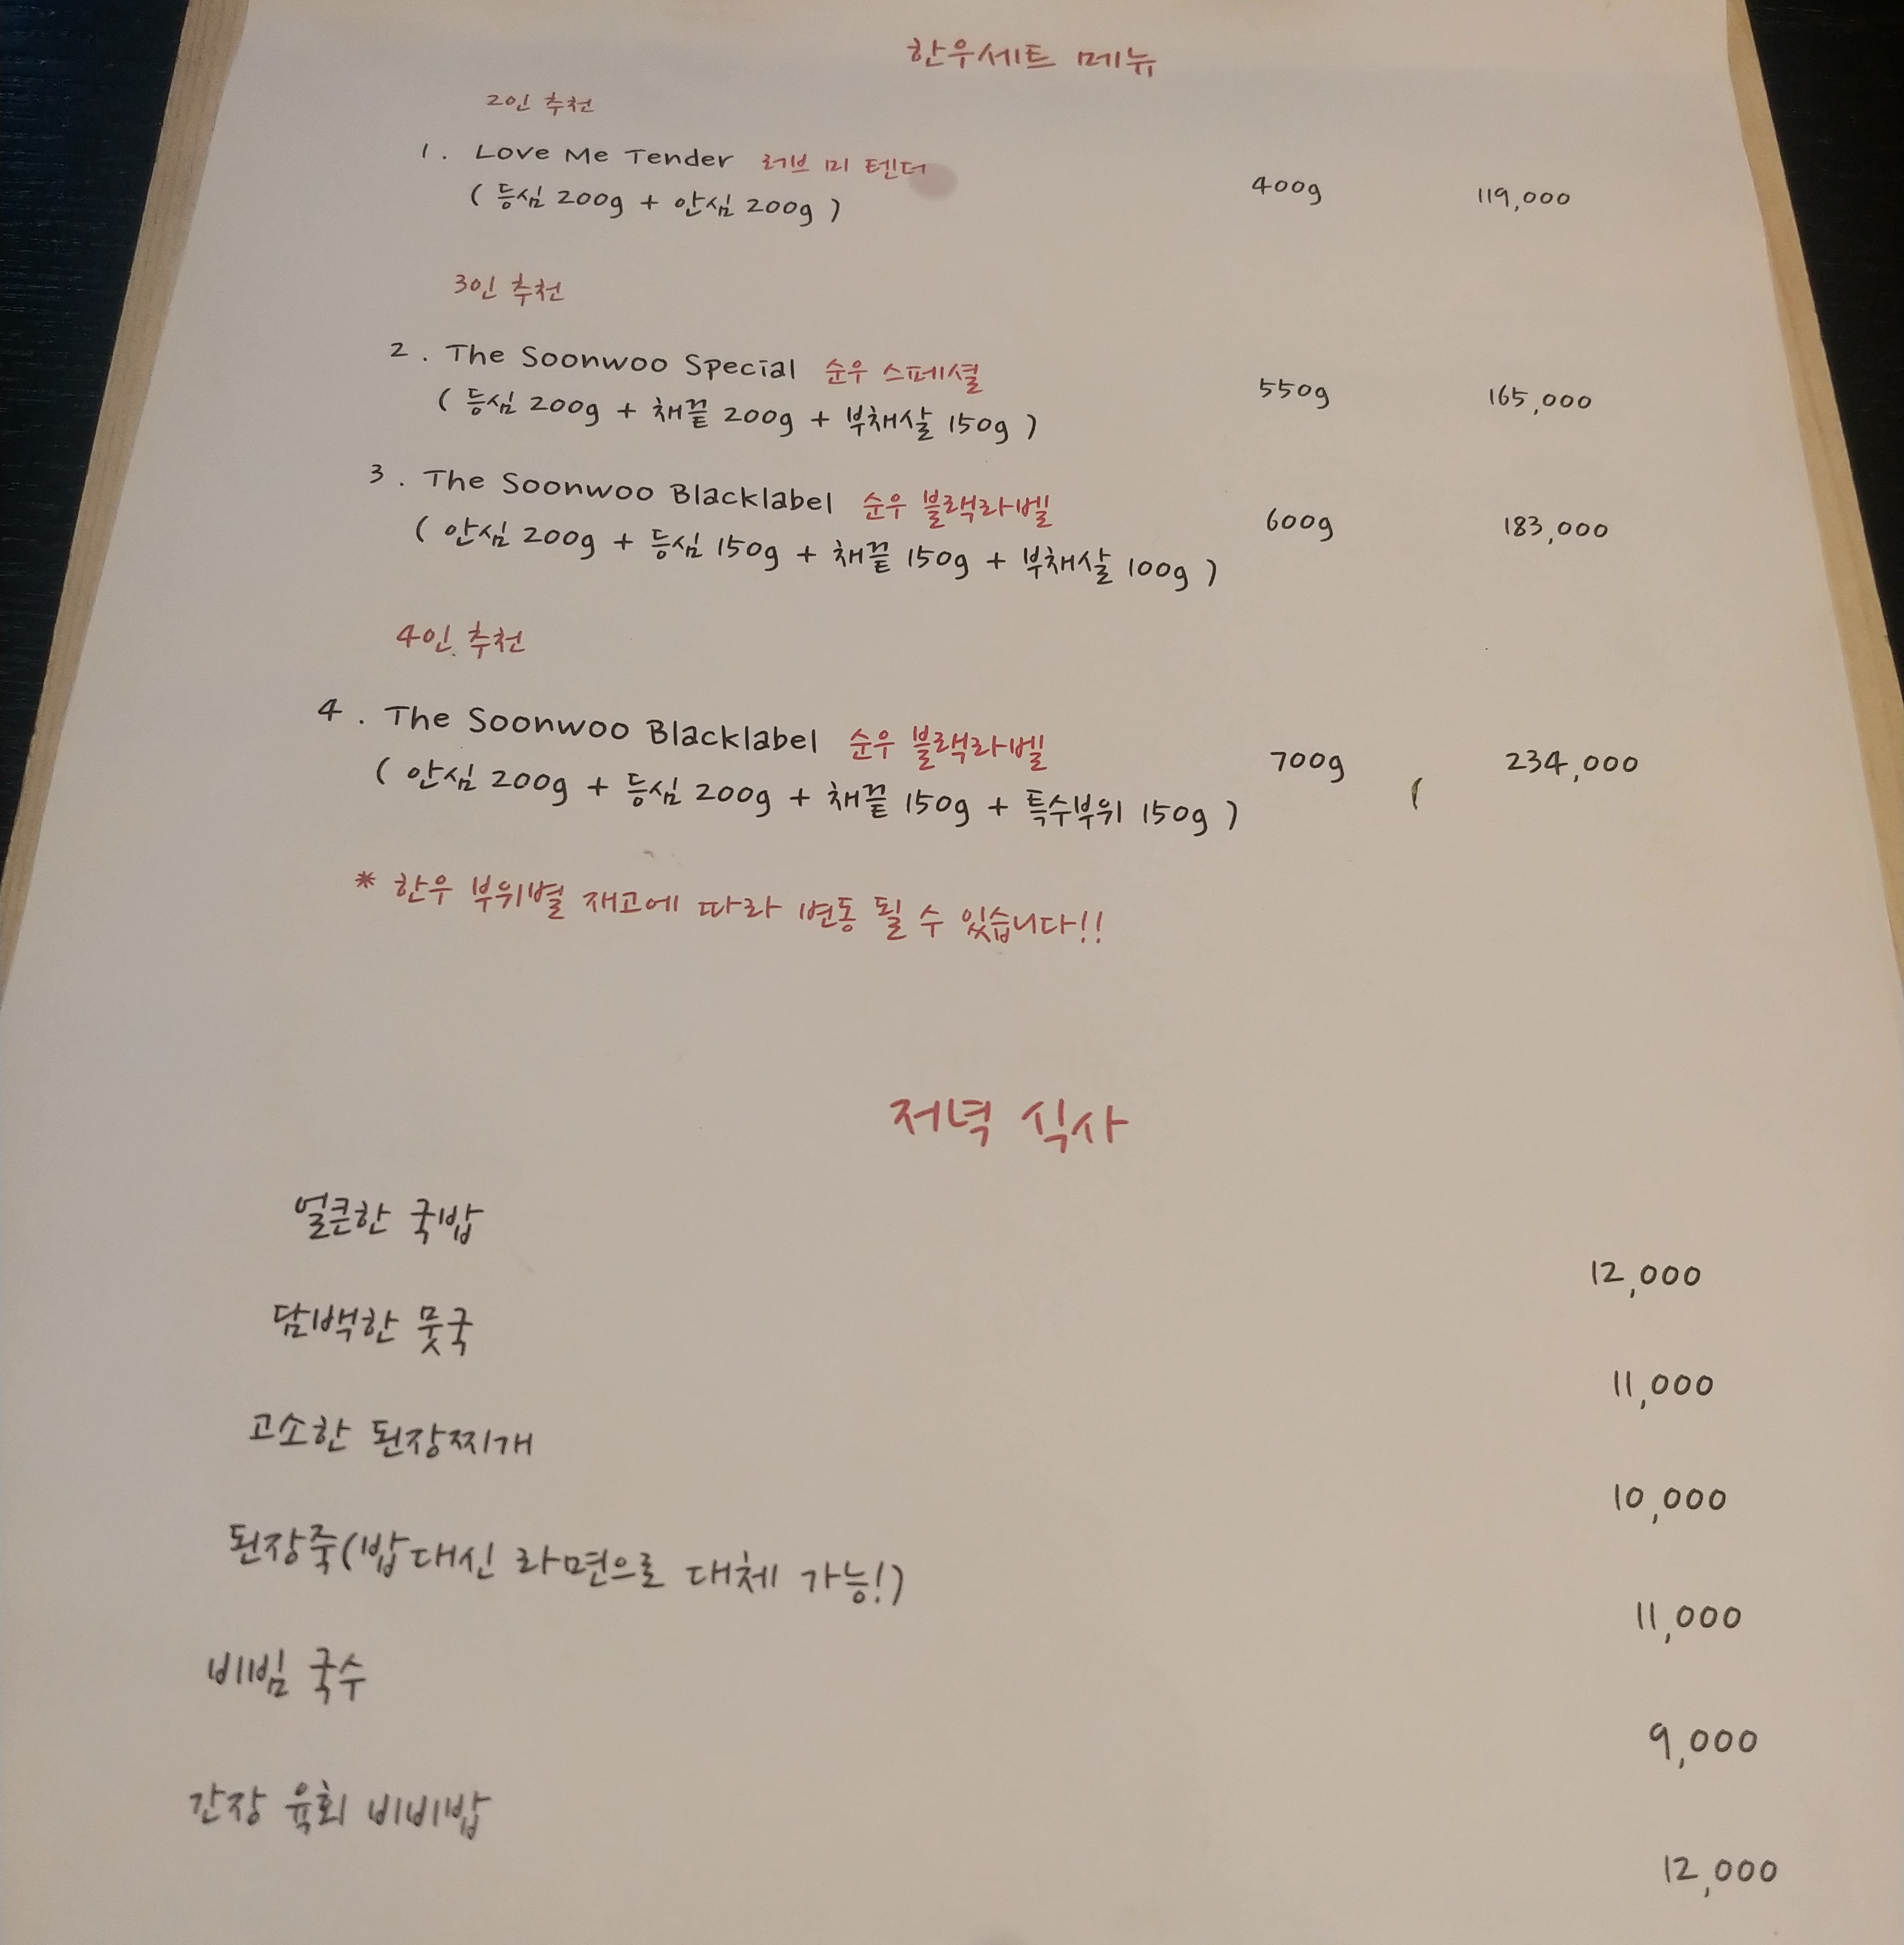 한우세트 메뉴
2인 추천
1. Love Me Tender 러브 미 텐더
(등심 200g + 안심 200g) 400g 119,000
3인 추천
2. The Soonwoo Special 순우 스페셜
(등심 200g + 채끝 200g + 부채살 150g) 550g 165,000
3. The Soonwoo Blacklabel 순우 블랙라벨
(안심 200g + 등심 150g + 채끝 150g + 부채살 100g) 600g 183,000
4인 추천
4. The Soonwoo Blacklabel 순우 블랙라벨
(안심 200g + 등심 200g + 채끝 150g + 특수부위 150g) 700g 234,000
* 한우 부위별 재고에 따라 변동 될 수 있습니다!!
저녁 식사
얼큰한 국밥 12,000
담백한 뭇국 11,000
고소한 된장찌개 10,000
된장죽(밥대신 라면으로 대체 가능!) 11,000
비빔 국수 9,000
간장 육회 비비밥 12,000